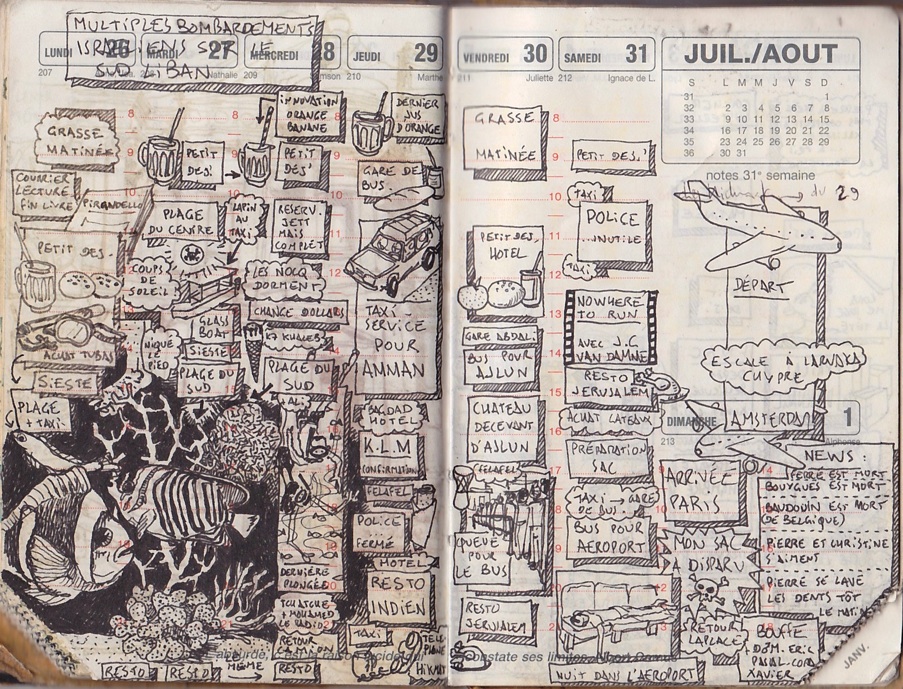 MULTIPLES BOMBARDEMENTS
ISRAELIENS SUR LE
SUD LIBAN
LUNDI 26
207
MARDI 27
Nathalie
MERCREDI 28
209
Samson
JEUDI 29
210
Marthe
GRASSE
MATINÉE
COURRIER
LECTURE
FIN LIVRE
PIRANDELLO
PETIT DES.
ACHAT TUBAS
SIESTE
PLAGE
+ TAXI
PETIT
DES!
PLAGE
DU CENTRE
LAPIN
AU
TAXI
COUPS
DE
SOLEIL
NIQUÉ
LE
PIED
GLASS
BOAT
SIESTE
PLAGE DU
SUD
INNOVATION
ORANGE
BANANE
PETIT
DES!
RESERV.
JETT
MAIS
COMPLÉT
LES NOCQ
DORMENT
CHANGE DOLLARS
PLAGE DU
SUD
DERNIÈRE
PLONGÉE
TCHATCHE
À MOHAMED
LE RADIO
RETOUR
RESTO
RESTO
RESTO
MÊME
DERNIER
JUS
D'ORANGE
GARE DE
BUS.
TAXI-
SERVICE
POUR
AMMAN
BAGDAD
HOTEL
K.L.M
CONFIRMATION
FELAFEL
POLICE
FERMÉ
HOTEL
RESTO
INDIEN
TAXI
VENDREDI 30
211
Juliette
SAMEDI 31
212
Ignace de L.
GRASSE
MATINÉE
PETIT DES.
HOTEL
GARE ABDALI
BUS POUR
AJLUN
CHATEAU
DECEVANT
D'AJLUN
FELAFEL
QUEUE
POUR
LE BUS
RESTO
JERUSALEM
PETIT DES!
TAXI
POLICE
...NUTILE
TAXI
NOWHERE
TO RUN
AVEC J.C
VAN DAMNE
RESTO
JERUSALEM
ACHAT CATEAUX
PRÉPARATION
SAC
TAXI → GARE
DE BUS
BUS POUR
AEROPORT
NUIT DANS L'AEROPORT
JUIL./AOUT
S L M M J V S D
31 1
32 2 3 4 5 6 7 8
33 9 10 11 12 13 14 15
34 16 17 18 19 20 21 22
35 23 24 25 26 27 28 29
36 30 31
notes 31e semaine
du 29
DÉPART
ESCALE À LARNAKA
CHYPRE
AMSTERDAM
DIMANCHE 1
213
Alphonse
ARRIVÉE
PARIS
MON SAC
A DISPARU
RETOUR
LAPLACE
NEWS :
FERRÉ EST MORT
BOUYGUES EST MORT
BAUDOUIN EST MORT
(DE BELGIQUE)
PIERRE ET CHRISTINE
S'AIMENT
PIERRE SE LAVE
LES DENTS TÔT
LE MATIN
BOUFFE
DOM. ERIC
PASCAL. COR
XAVIER
JANV.
constate ses limites. Albert Camus